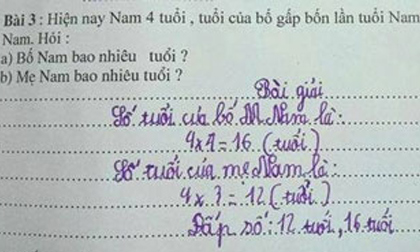 Bài 3 : Hiện nay Nam 4 tuổi , tuổi của bố gấp bốn lần tuổi Nam
Nam. Hỏi :
a) Bố Nam bao nhiêu tuổi ?
b) Mẹ Nam bao nhiêu tuổi ?
Bài giải
Số tuổi của bố Nam là:
4 x 4 = 16 (tuổi)
Số tuổi của mẹ Nam là:
4 x 3 = 12 (tuổi)
Đấp số: 12 tuổi, 16 tuổi